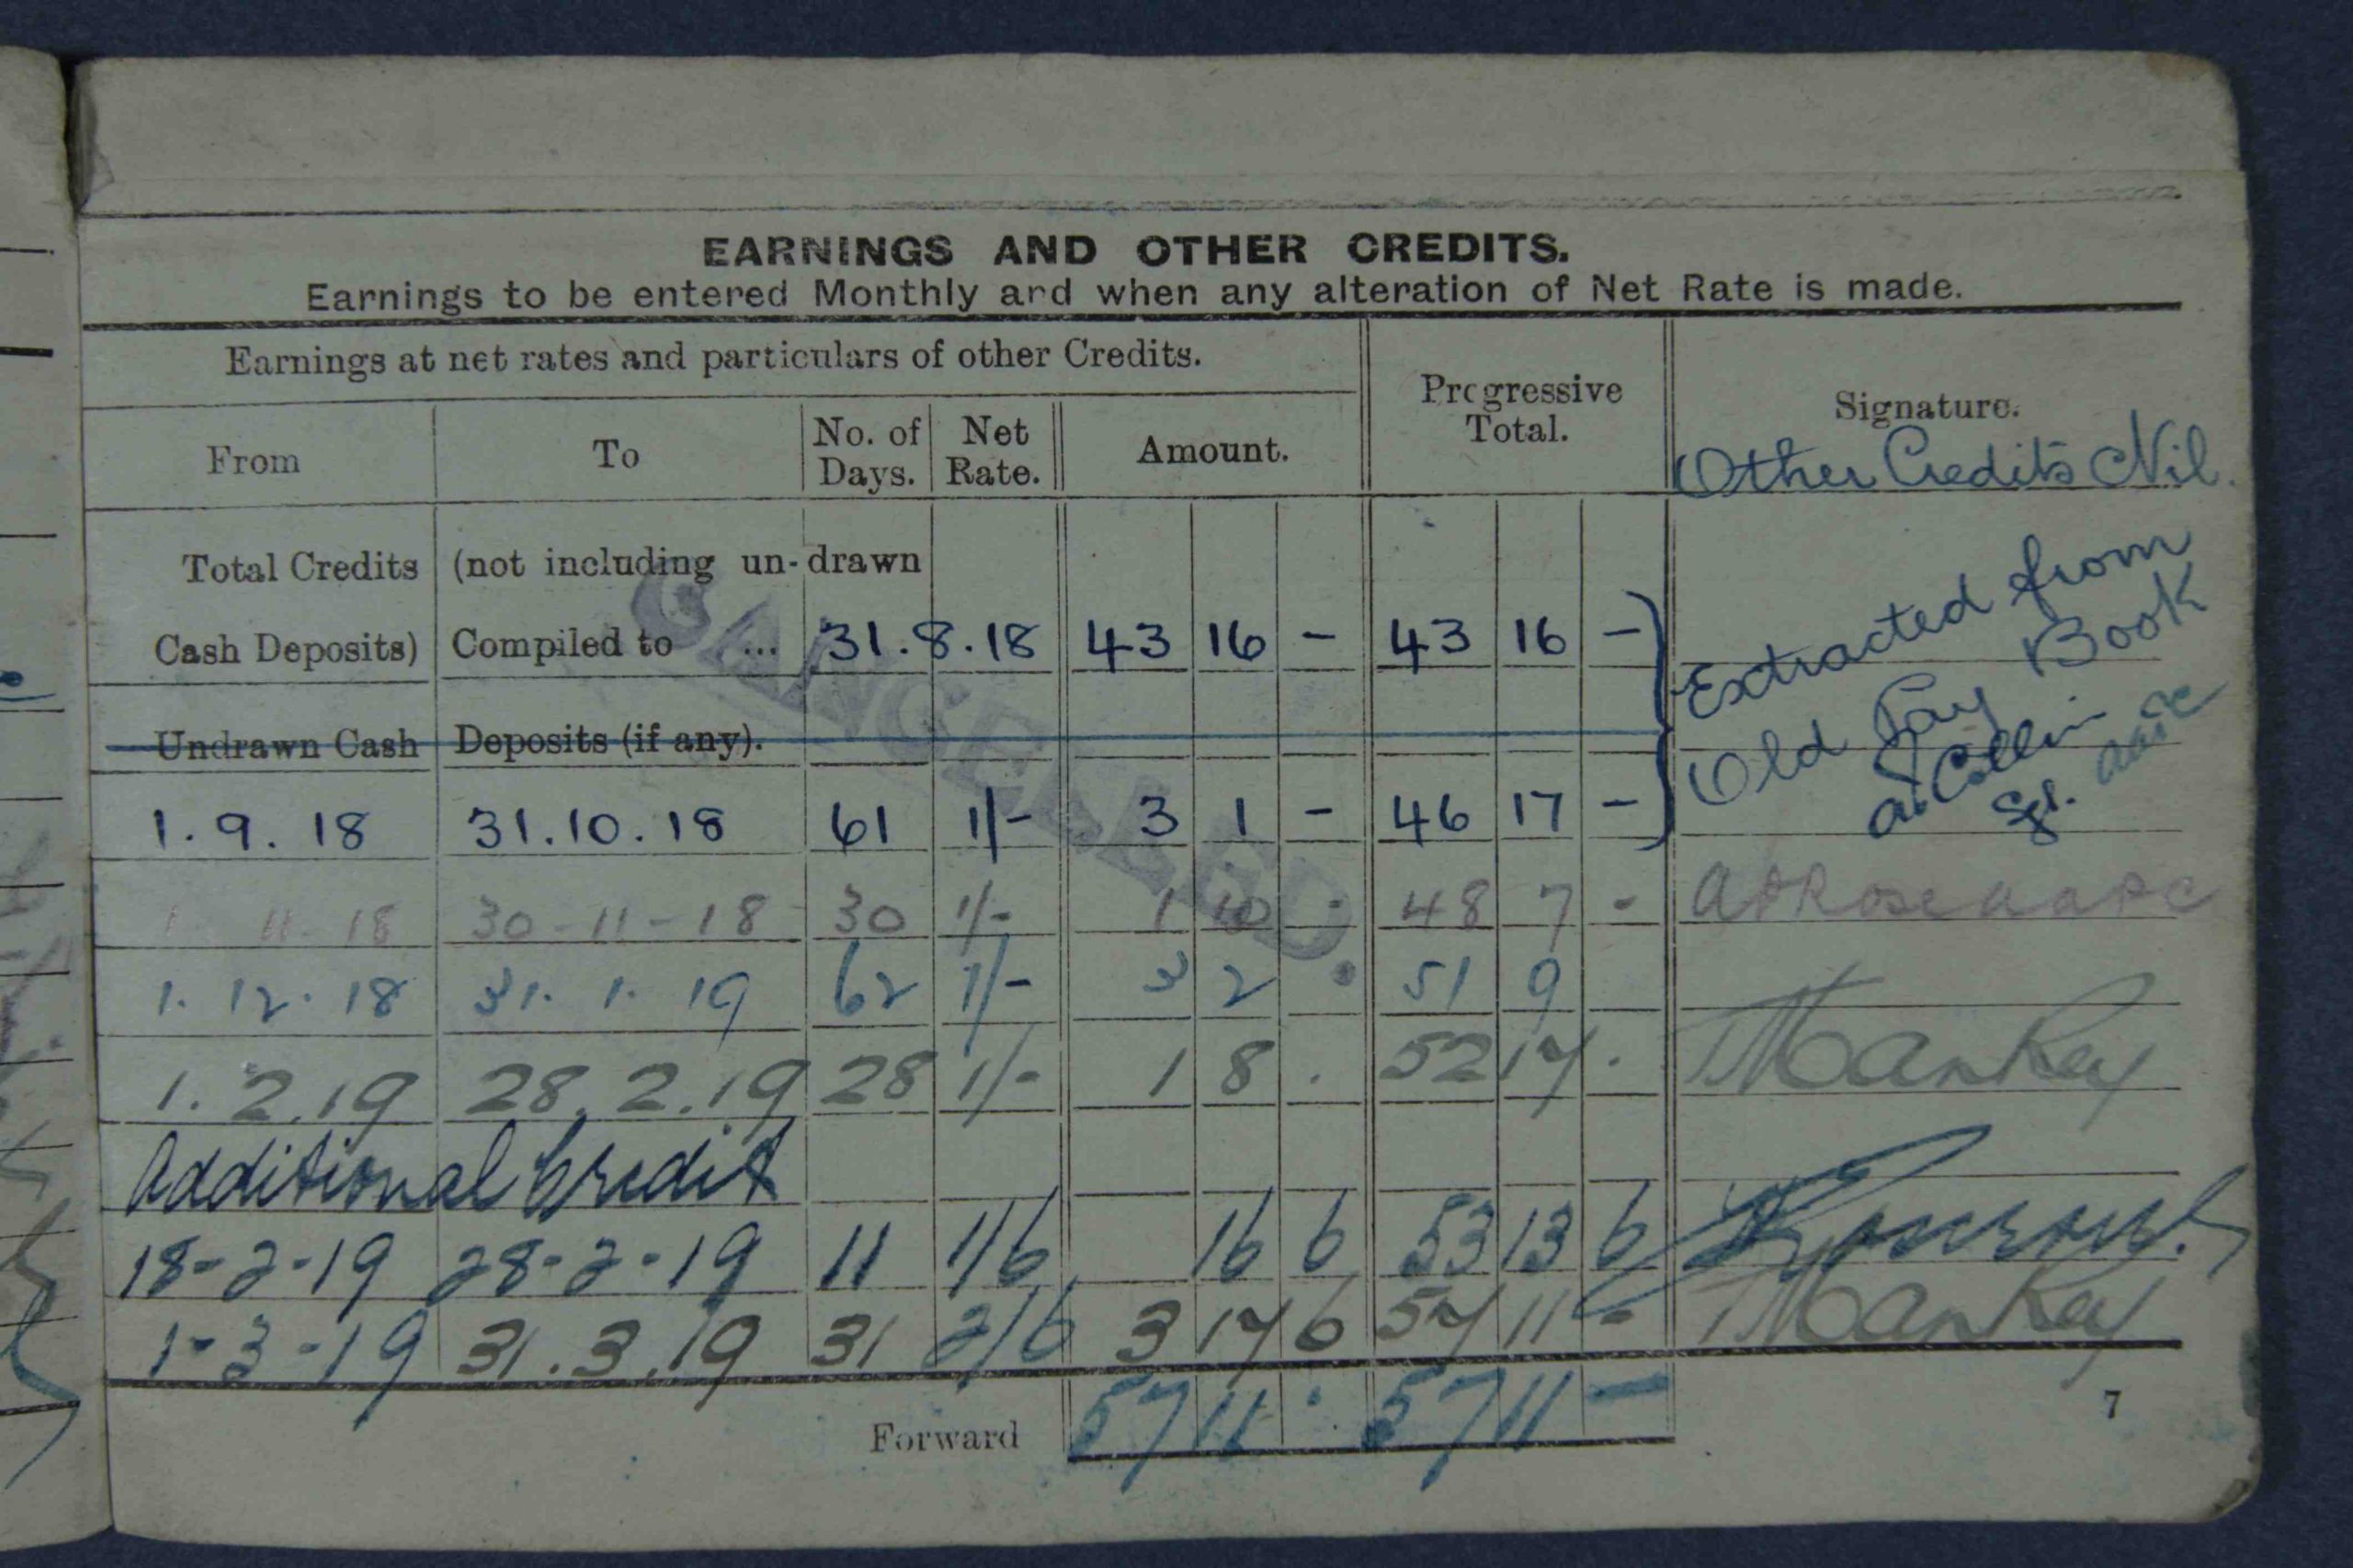 EARNINGS AND OTHER CREDITS.
Earnings to be entered Monthly and when any alteration of Net Rate is made.
Earnings at net rates and particulars of other Credits.
Progressive Total.
Signature.
From To No. of Days. Net Rate. Amount.
Other Credits Nil.
Total Credits (not including un-drawn
Cash Deposits) Compiled to ... 31.8.18 43 16 - 43 16 -
Extracted from
Old Pay Book
Undrawn Cash Deposits (if any).
1.9.18 31.10.18 61 1/- 3 1 - 46 17 -
1 11-18 30-11-18 30 1/- 1 10 - 48 7 - ADRose AAPC
1.12.18 31.1.19 62 1/- 3 2 . 51 9
1.2.19 28.2.19 28 1/- 1 8 . 52 17 .
Additional Credit
18-2-19 28-2-19 11 1/6 16 6 53 13 6
1-3-19 31.3.19 31 2/6 3 17 6 57 11 -
Forward 57 11 . 57 11 -
7
CANCELLED.